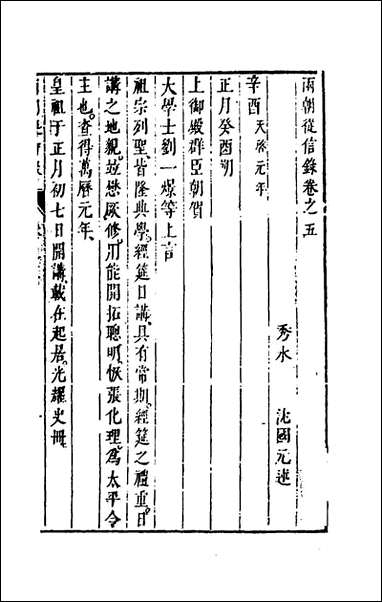 兩朝從信錄卷之五
秀水 沈國元述
辛酉天啓元年
正月癸酉朔
上御殿群臣朝賀
大學士劉一燝等上言
祖宗列聖皆隆典學經筵日講具有常期經筵之禮重日
講之地親玆懋厥修用能開拓聰明恢張化理為太平令
主也查得萬曆元年
皇祖于正月初七日開講載在起居光耀史冊